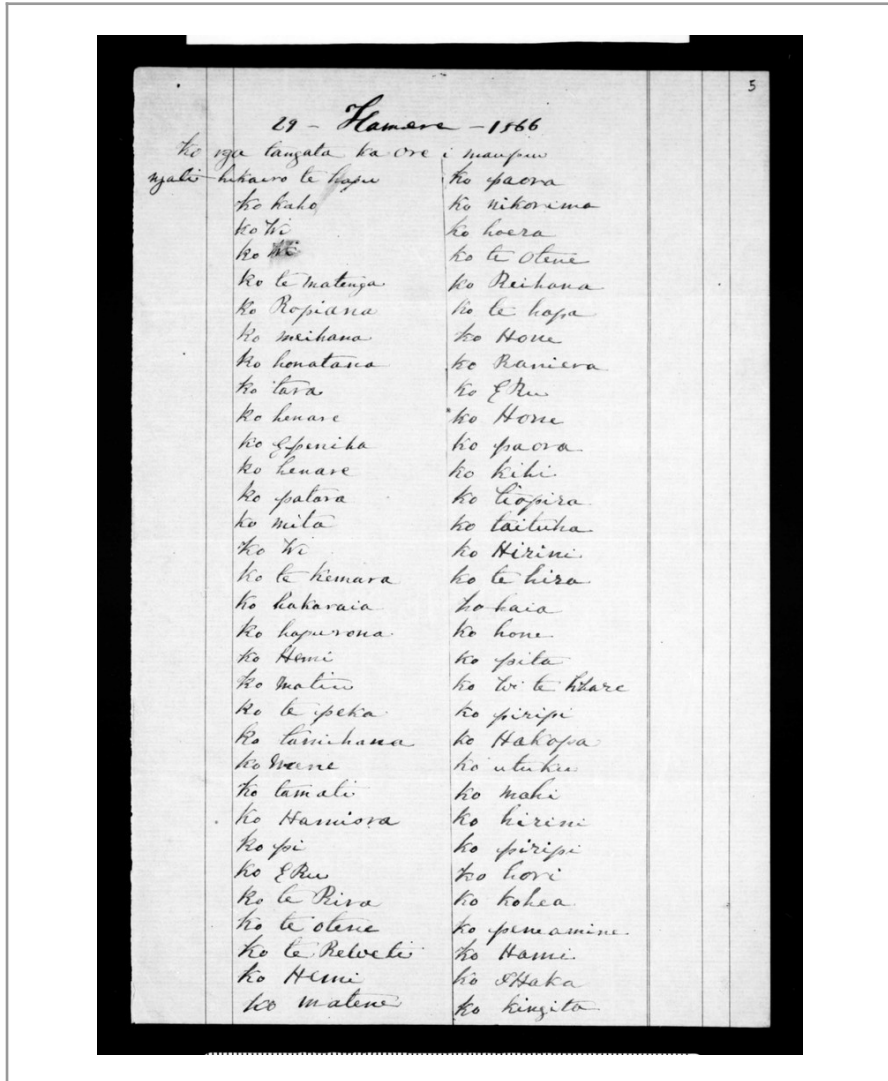 5
29 - Hamere - 1866
ko nga tangata ka ore i maupuu
ngali hikairo te hapu
ko kaho
ko Wi
ko Wi
ko te matenga
ko Ropiana
ko meihana
ko honatana
ko tara
ko henare
ko Epeniha
ko henare
ko patara
ko mita
ko Wi
ko te kemara
ko hakaraia
ko hapurona
ko Hemi
ko matiu
ko te peka
ko tamihana
ko mane
ko tamati
ko Hamiora
ko pi
ko ERu
ko te Rira
ko te otene
ko te Retveti
ko Hemi
ko matene
ko paora
ko nikorima
ko hoera
ko te Otene
ko Reihana
ko te hapa
ko Hone
ko Raniera
ko ERu
ko Hone
ko paora
ko kihi
ko tiopira
ko taituha
ko Hirini
ko te hira
ko haia
ko hone
ko pita
ko Wi te whare
ko piripi
ko Hakopa
ko utuku
ko mahi
ko hirini
ko piripi
ko hori
ko kohea
ko peneamine
ko Hami
ko IHaka
ko kingita